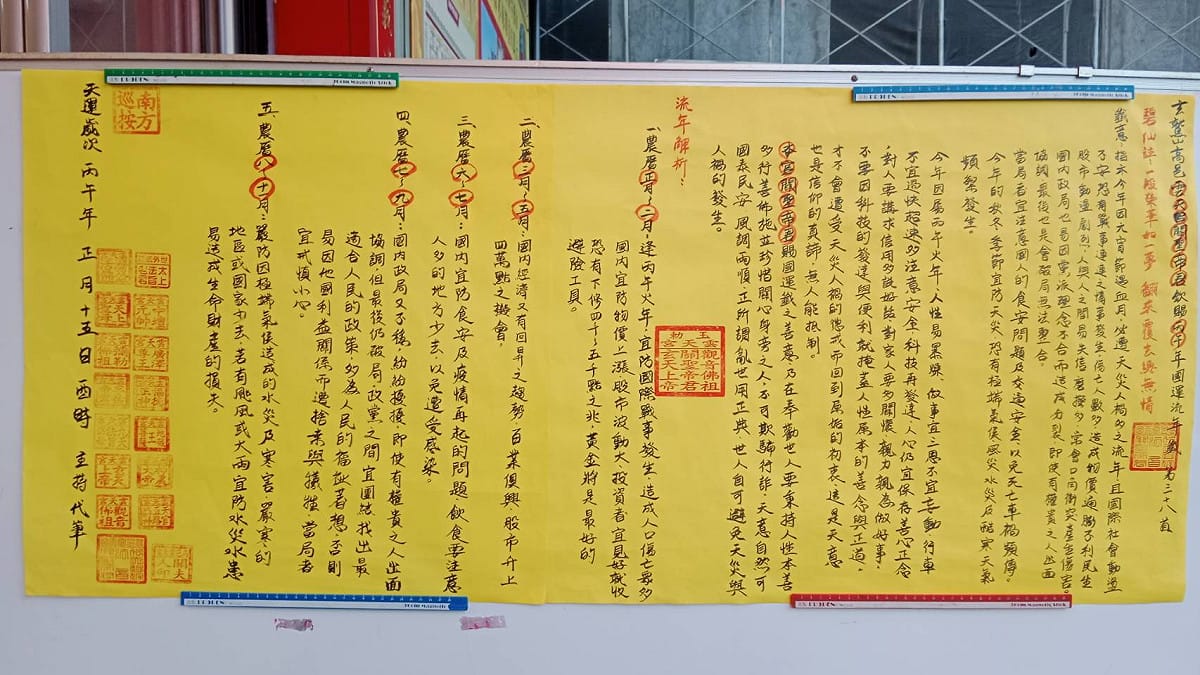 玄鷲山高邑雲天宮關聖帝君欽賜丙午年國運流年籤 第二八首
碧仙詩：一段榮華如一夢 翻來覆去總無情
籤意：指本今年因元宵節遇血月，必遭天災人禍之流年且國際社會動盪
不安恐有戰事連連之情事發生，傷亡人數多造成物價通膨不利民生
股市動盪劇烈，人與人之間易失信磨擦多，常會口角衝突產生傷害。
國內政局也易因黨派理念不合而造成分裂，即使有權貴之人出面
協調最後也是會破局無法整合。
當局者宜注意國人的食安問題及交通安全以免天亡車禍頻傳。
今年的秋冬季節宜防天災，恐有極端氣侯風災水災及酷寒天氣
頻繁發生。
今年因屬丙午火年，人性易暴躁，做事宜三思不宜妄動，行車
不宜過快搶速多注意安全，科技再發達，人心仍宜保存善心正念
，對人要講求信用多說好話對家人要多關懷，親力親為做好事，
不要因科技的發達與便利就掩盖人性原本的善念與正道，
才不會遭受天災人禍的懲戒而回到原始的初衷，這是天意
也是信仰的真諦，無人能抵制。
本宮關聖帝君賜國運籤之善意乃在奉勸世人要秉持人性本善
多行善佈施並珍惜關心身旁之人，不可欺騙行詐，天意自然可
國泰民安，風調雨順正所謂亂世用正典，世人自可避免天災與
人禍的發生。
玉勅
雲觀音佛祖
天關聖帝君
宮玄天上帝
流年解析：
一、農曆正月～二月：逢丙午火年，宜防國際戰事發生，造成人口傷亡眾多
國內宜防物價上漲股市波動大，投資者宜見好就收
恐有下修四千～五千點之兆，黃金將是最好的
避險工具。
二、農曆三月～五月：國內經濟又有回昇之趨勢，百業俱興，股市升上
四萬點之機會，
三、農曆六～七月：國內宜防食安及疫情再起的問題，飲食要注意
人多的地方少去，以免遭受感染。
四、農曆七～九月：國內政局又不穩，紛紛擾擾，即使有權貴之人出面
協調，但最後仍破局，政黨之間宜團結找出最
適合人民的政策，多為人民的福祉著想，否則
易因地國利益關係而遭捨棄與犧牲，當局者
宜戒慎小心。
五、農曆八～十月：嚴防因極端氣侯造成的水災及寒害，嚴寒的
地區或國家少去，若有颱風或大雨宜防水災水患
易造成生命財產的損失。
南方
巡按
天運歲次 丙午年 正月十五日 酉時 主持代筆